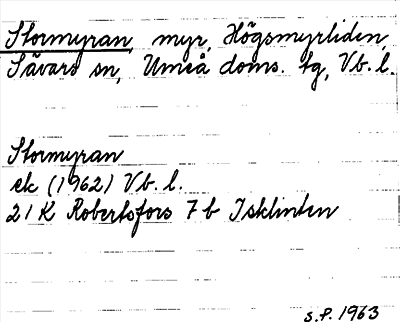 Stormyran, myr, Högsmyrliden,
Sävars sn, Umeå doms. tg, Vb. l.
Stormyran
ek (1962) Vb. l.
21 K Robertsfors 7 b Isklinten
S.P. 1963